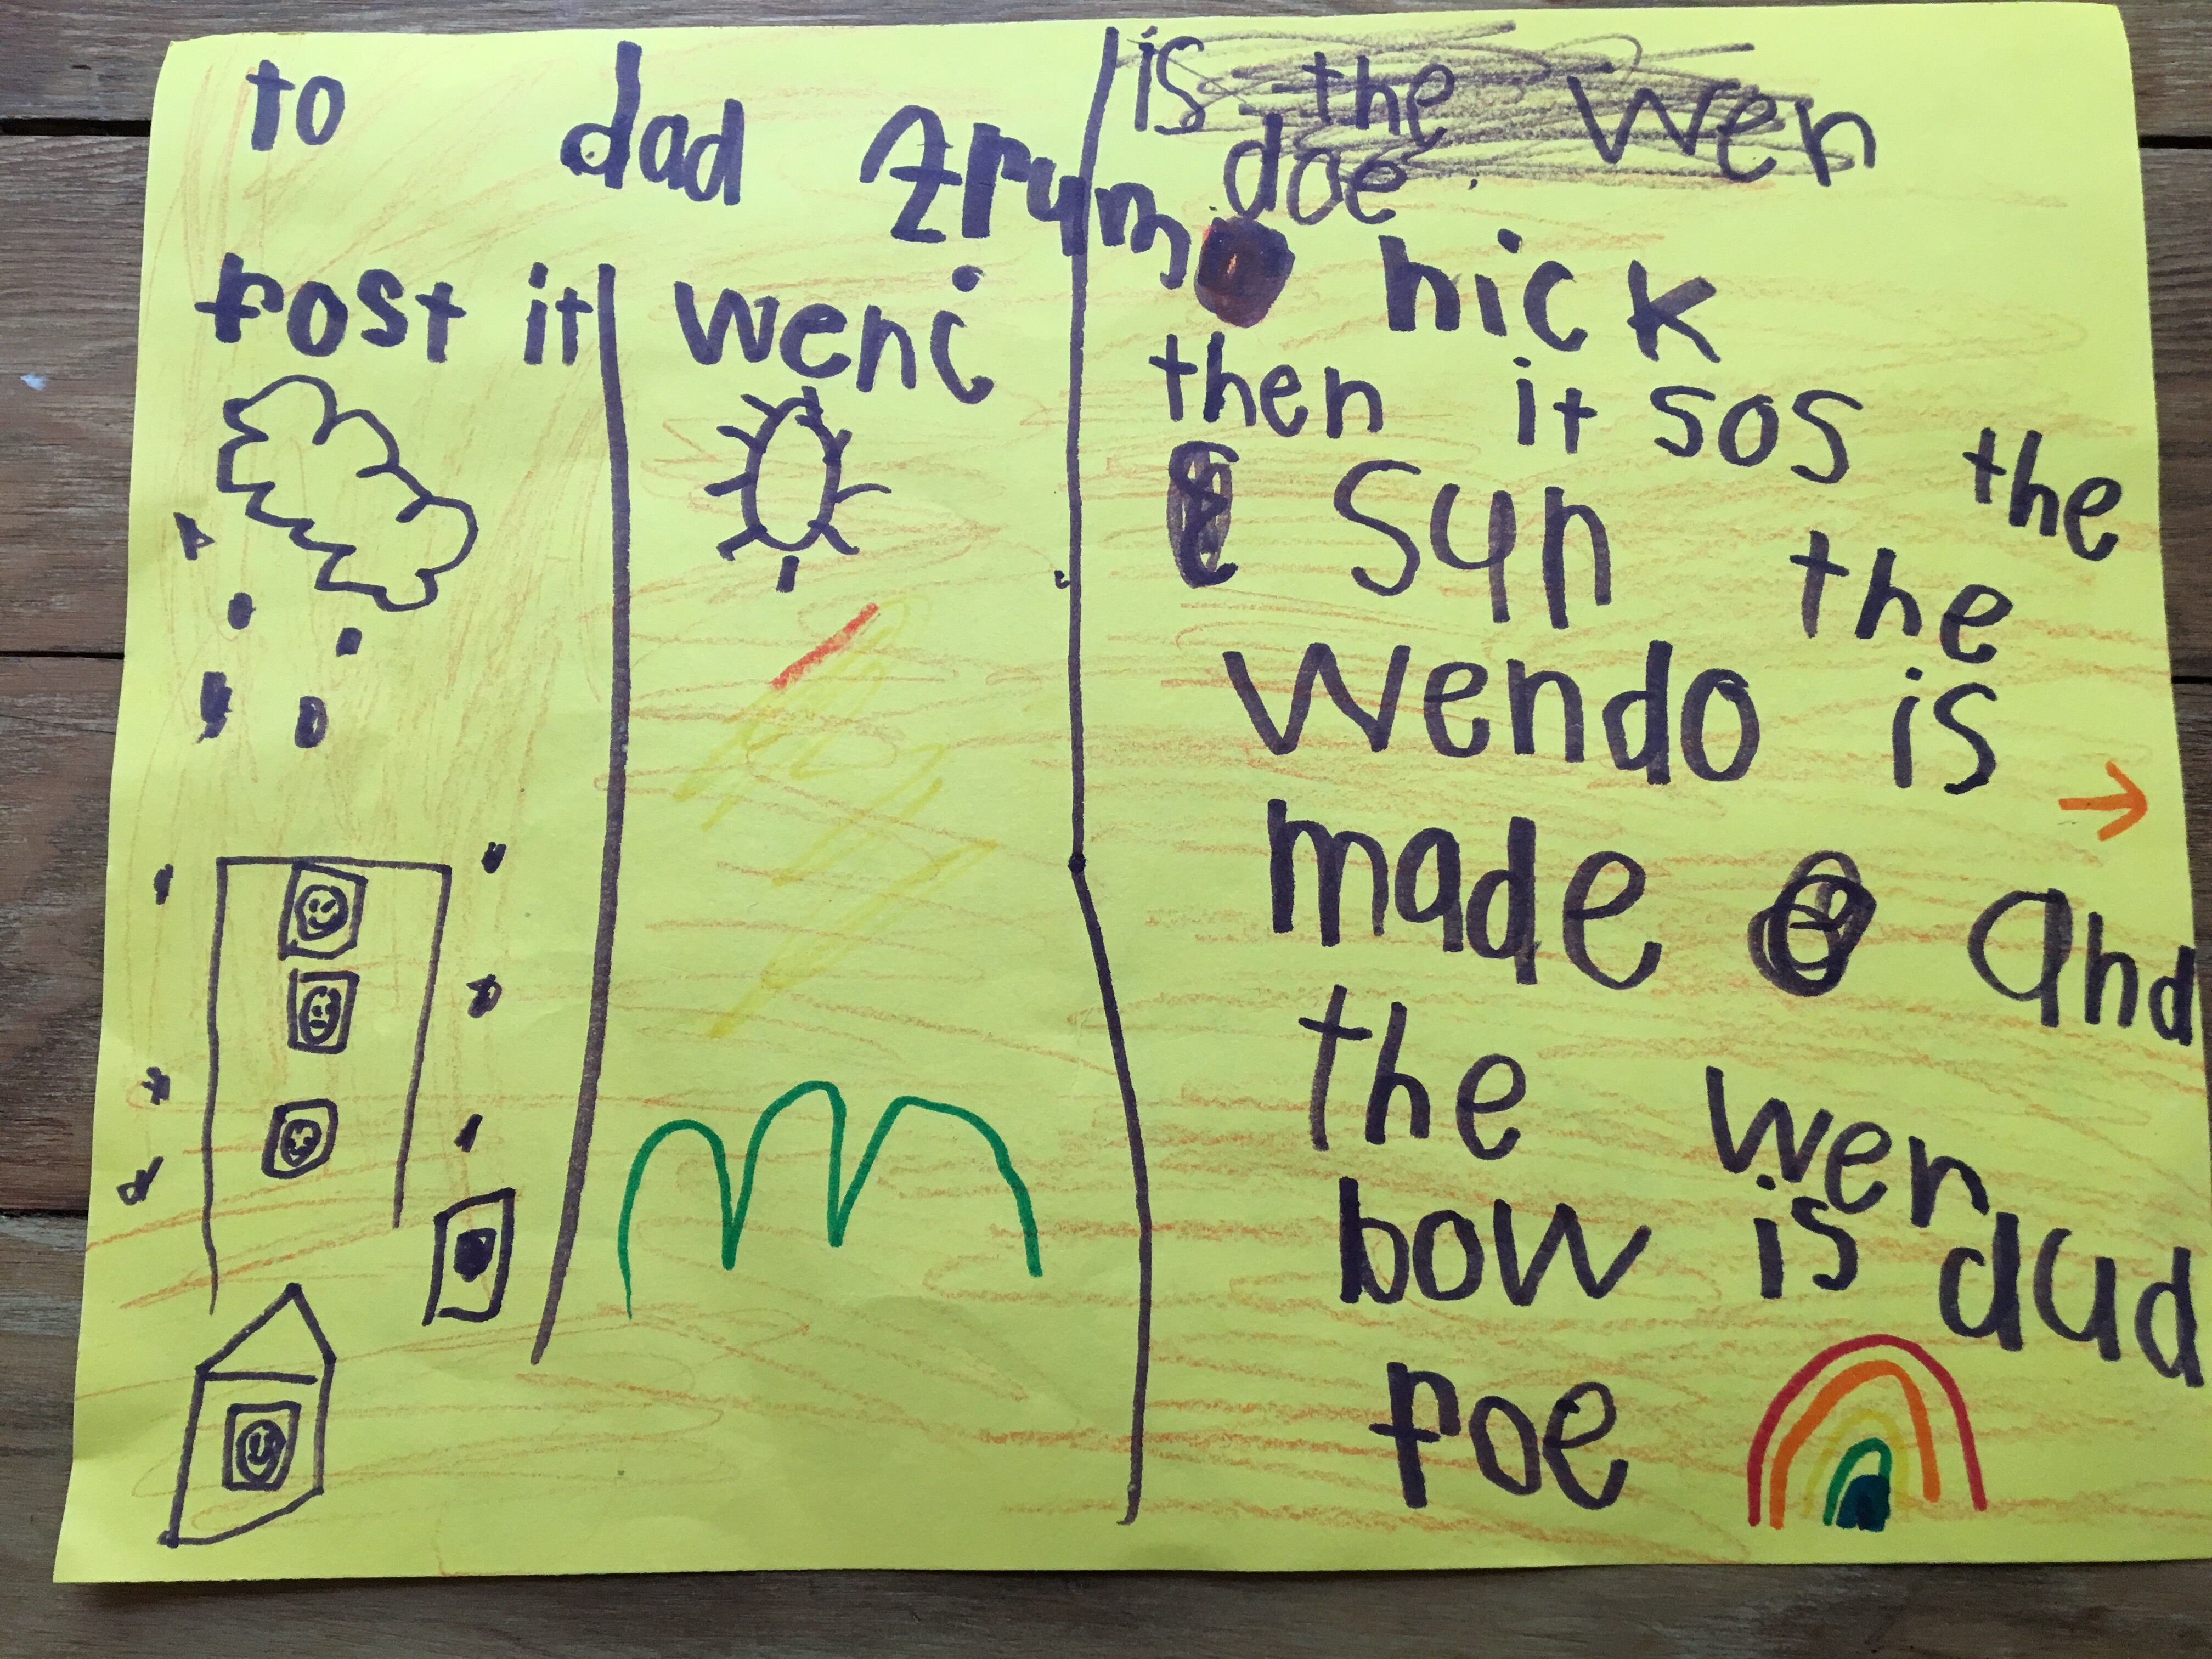 to dad frum
nick
fost it
weni
is the wen
doe
then it sos the
sun the
wendo is
made and
the wen
bow is dud
foe